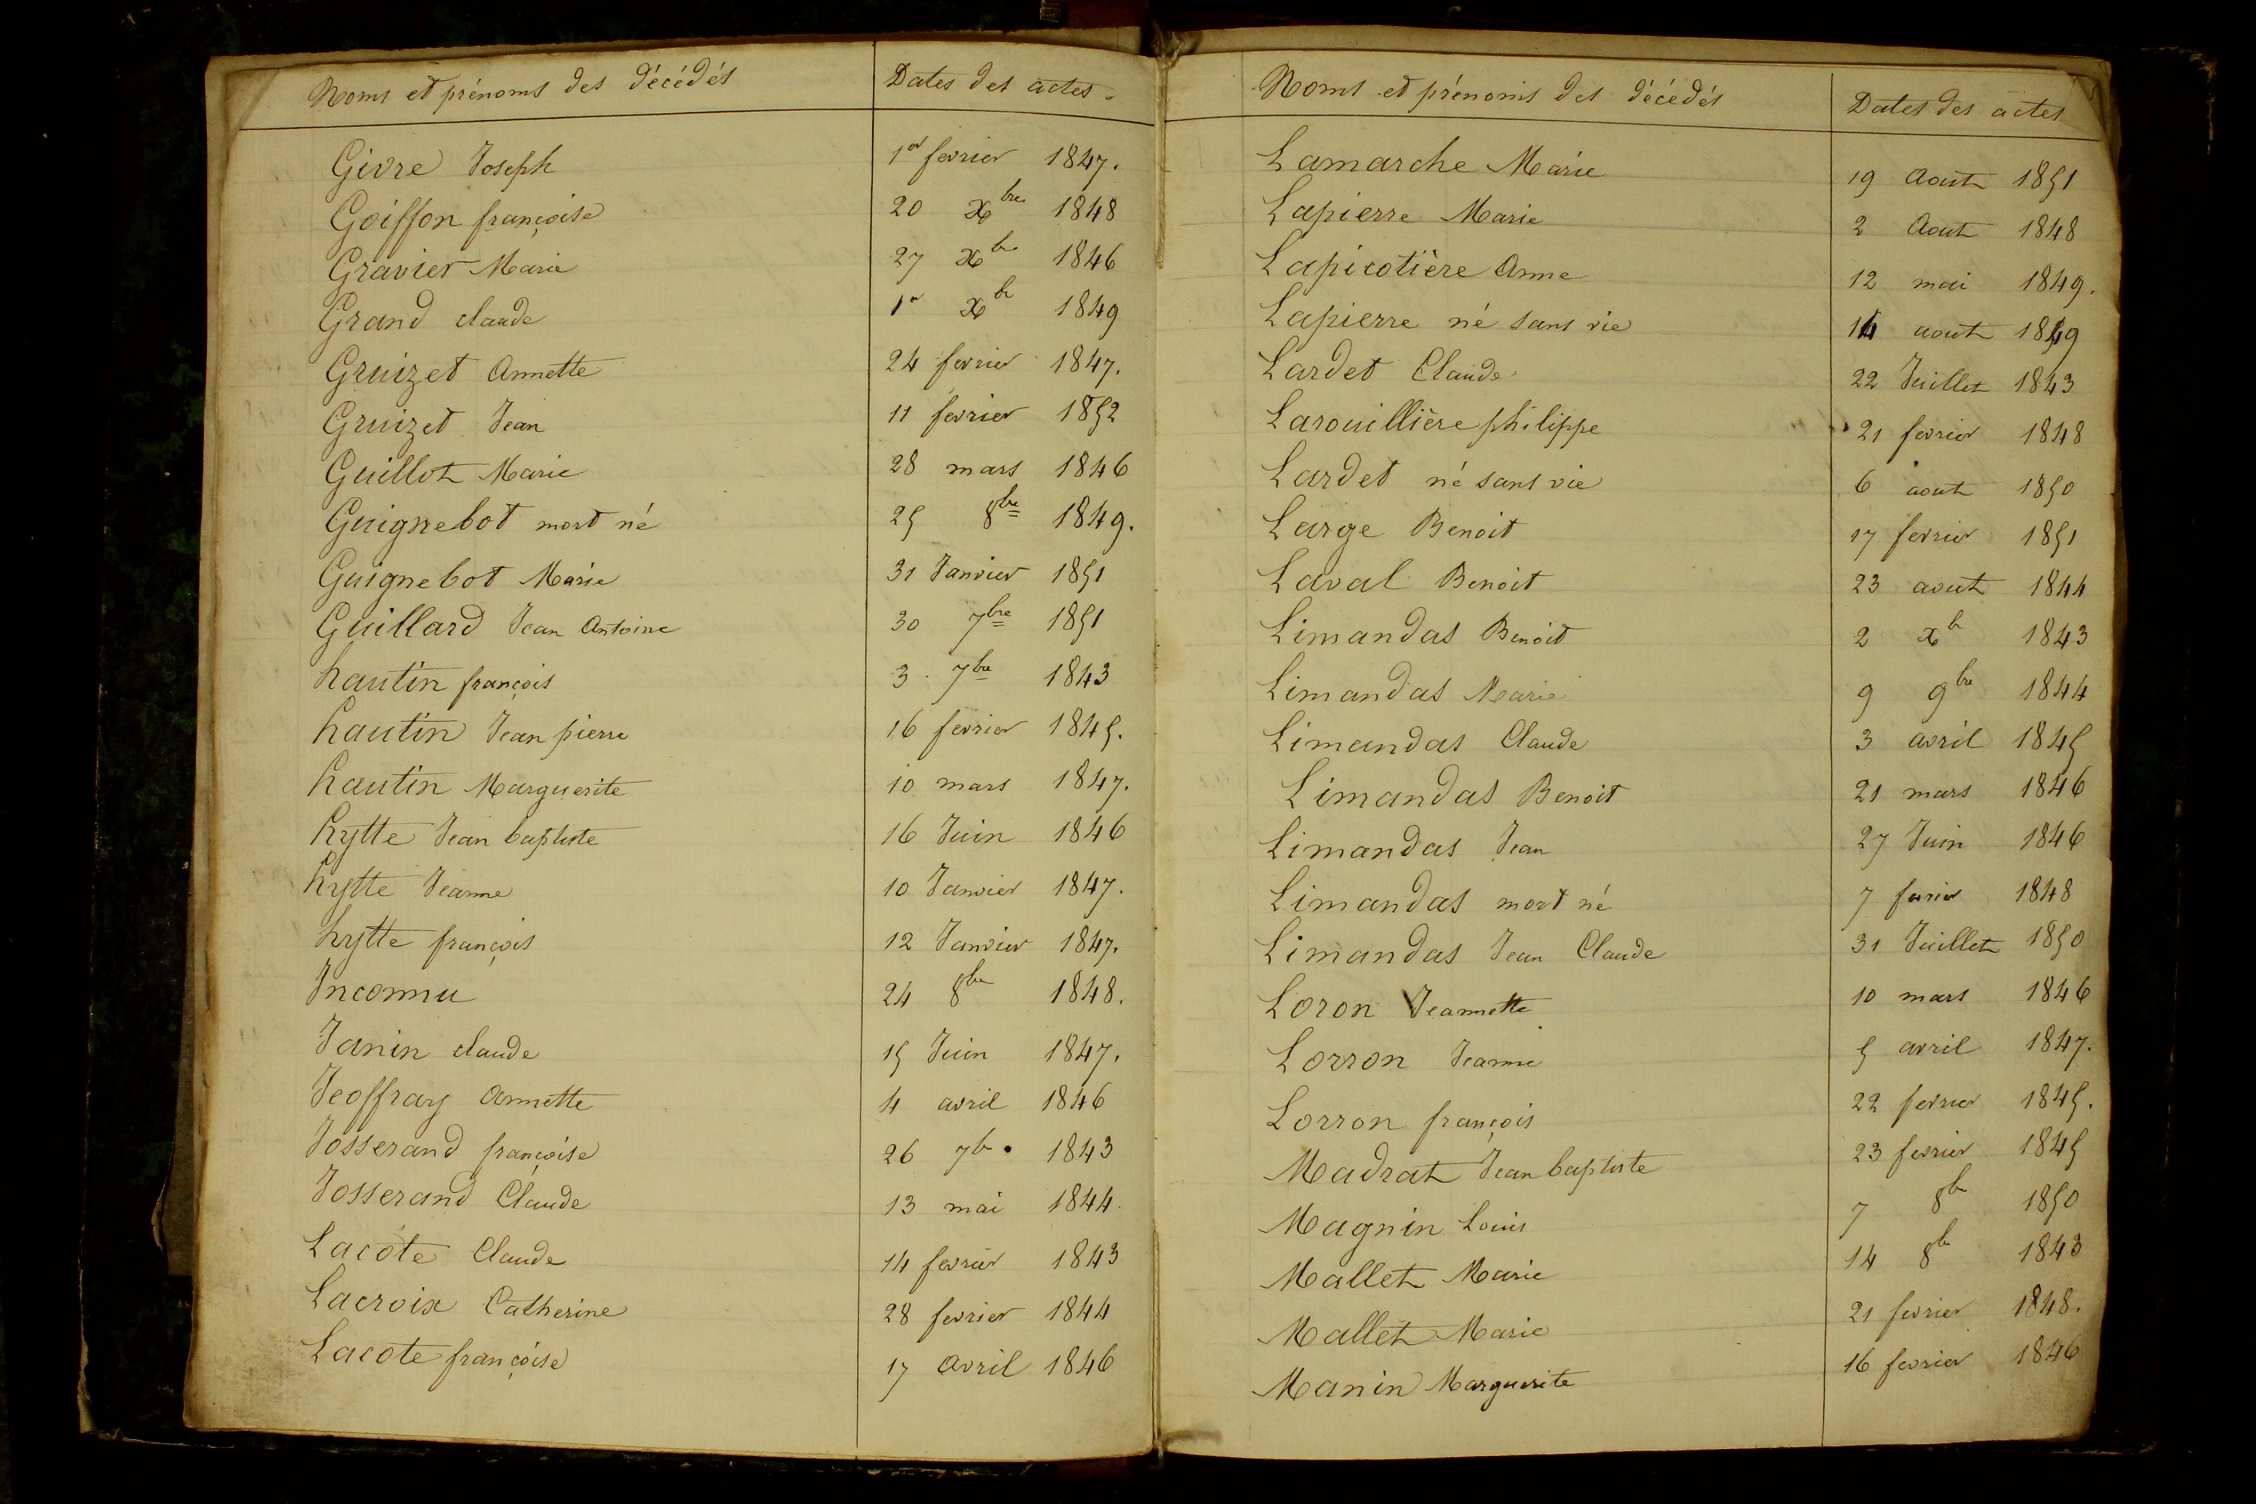 Noms et prénoms des décédés Dates des actes.
Givre Joseph 1er fevrier 1847.
Goiffon françoise 20 xbre 1848
Gravier Marie 27 xbre 1846
Grand claude 1er xbre 1849
Gruizet Annette 24 fevrier 1847.
Gruizet Jean 11 fevrier 1852
Guillot Marie 28 mars 1846
Guignebot mort né 25 8bre 1849.
Guignebot Marie 31 Janvier 1851
Guillard Jean Antoine 30 7bre 1851
hautin françois 3 7bre 1843
hautin Jean pierre 16 fevrier 1845.
hautin Marguerite 10 mars 1847.
hytte Jean baptiste 16 Juin 1846
hytte Jeanne 10 Janvier 1847.
hytte françois 12 Janvier 1847.
Inconnu 24 8bre 1848.
Janin claude 15 Juin 1847.
Jeoffray Annette 4 avril 1846
Josserand françoise 26 7b. 1843
Josserand Claude 13 mai 1844
Lacote Claude 14 fevrier 1843
Lacroix Catherine 28 fevrier 1844
Lacote françoise 17 Avril 1846
Noms et prénoms des décédés Dates des actes
Lamarche Marie 19 Aout 1851
Lapierre Marie 2 Aout 1848
Lapicotière Anne 12 mai 1849.
Lapierre né sans vie 14 aout 1849
Lardet Claude 22 Juillet 1843
Larouillière philippe 21 fevrier 1848
Lardet né sans vie 6 aout 1850
Large Benoit 17 fevrier 1851
Laval Benoit 23 aout 1844
Limandas Benoit 2 xb 1843
Limandas Marie 9 9bre 1844
Limandas Claude 3 avril 1845
Limandas Benoit 21 mars 1846
Limandas Jean 27 Juin 1846
Limandas mort né 7 fevrier 1848
Limandas Jean Claude 31 Juillet 1850
Loron Jeannette 10 mars 1846
Lorron Jeanne 5 avril 1847.
Lorron françois 22 fevrier 1845.
Madrat Jean baptiste 23 fevrier 1845
Magnin Louis 7 8b 1850
Mallet Marie 14 8b 1843
Mallet Marie 21 fevrier 1848.
Manin Marguerite 16 fevrier 1846